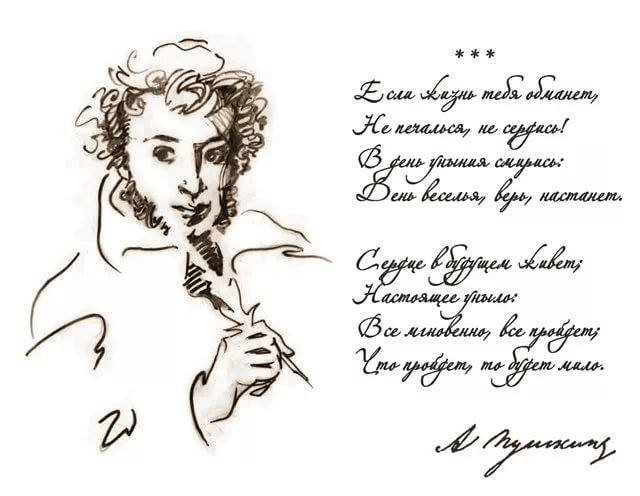 ***
Если жизнь тебя обманет,
Не печалься, не сердись!
В день уныния смирись:
День веселья, верь, настанет.
Сердце в будущем живет;
Настоящее уныло:
Все мгновенно, все пройдет;
Что пройдет, то будет мило.
А Пушкинъ